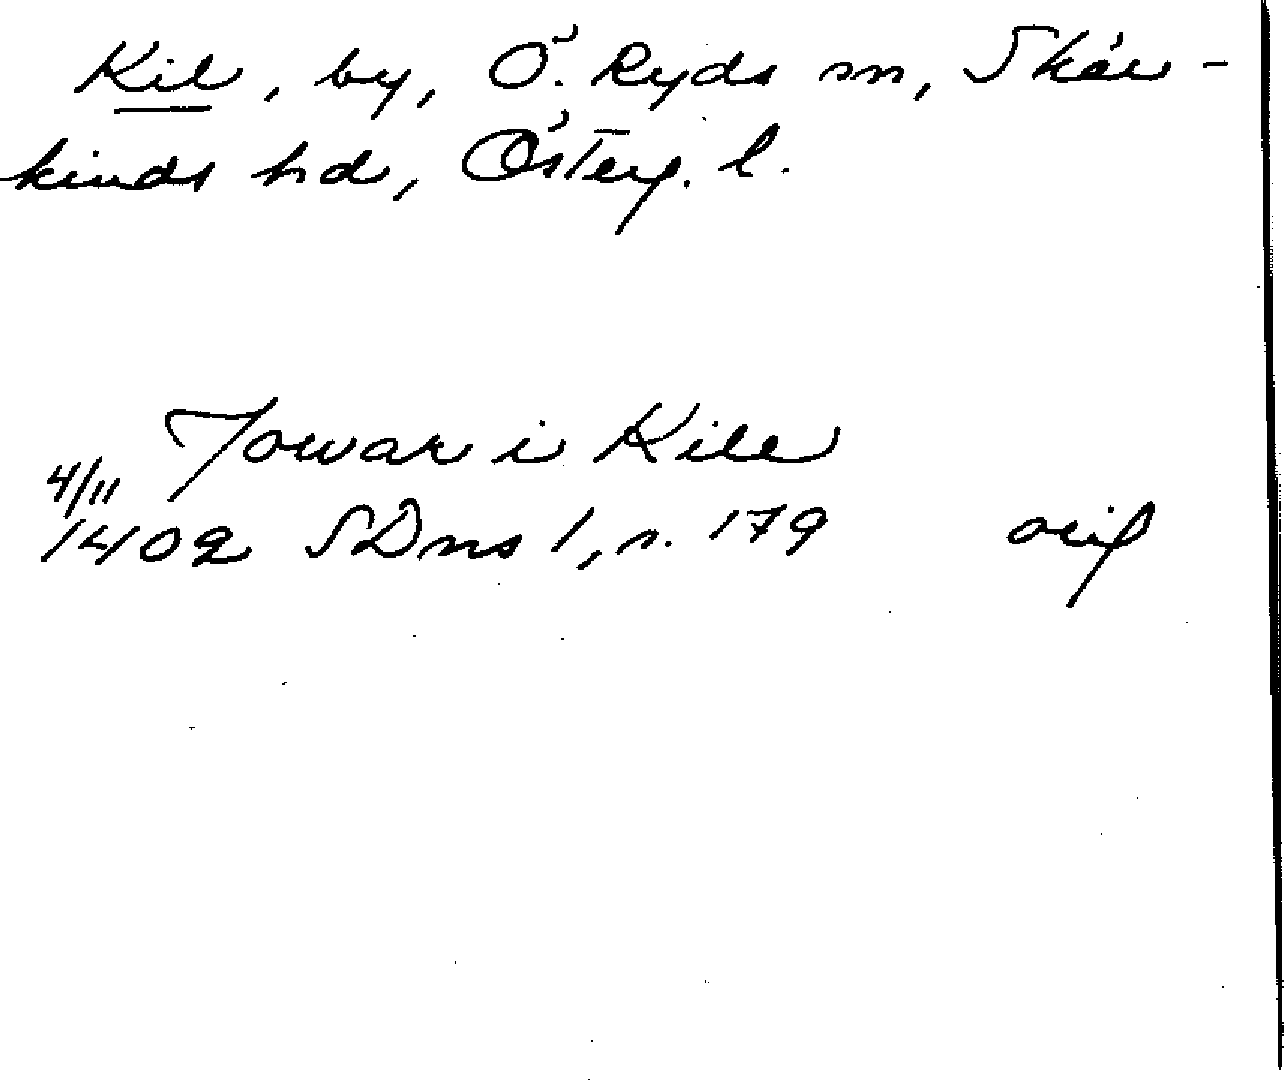 Kil, by, Ö. Ryds sn, Skär-
kinds hd, Österg. l.
Jowar i Kile
4/11
1402 SDns 1, s. 179 orig